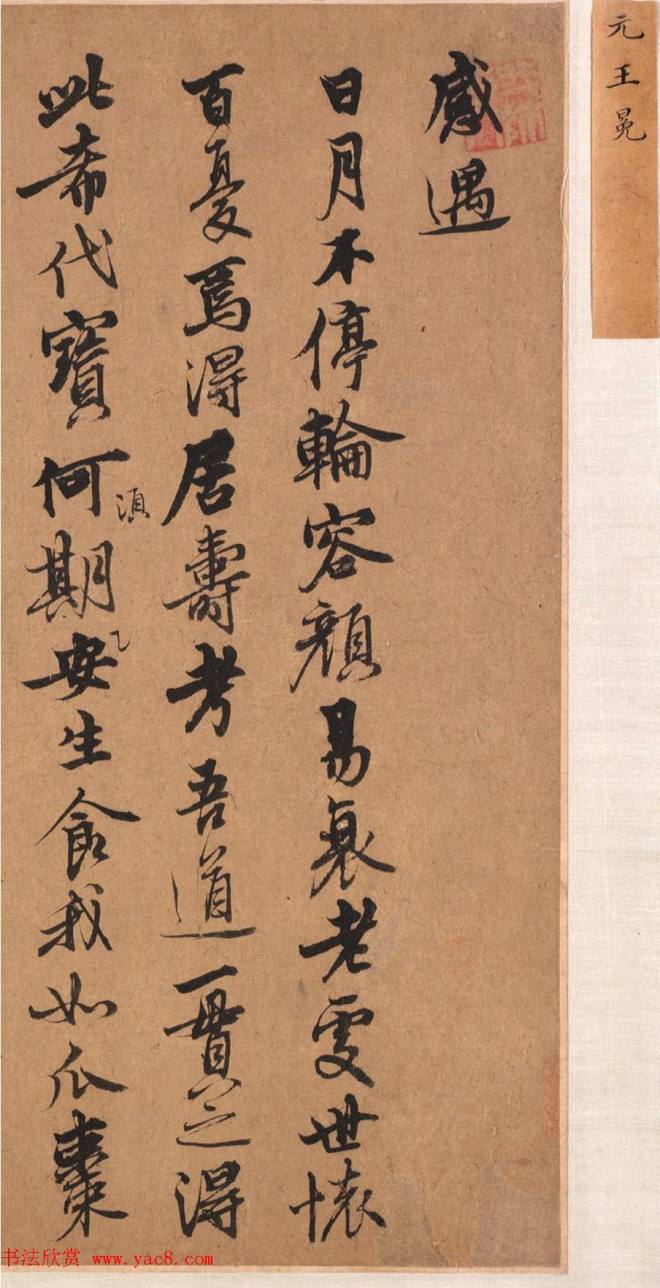 元王冕
感遇
日月不停輪容顏易衰老處世懷
百憂焉得居壽考吾道一貫之得
此希代寶何湏期安生食我如瓜棗
书法欣赏 www.yac8.com